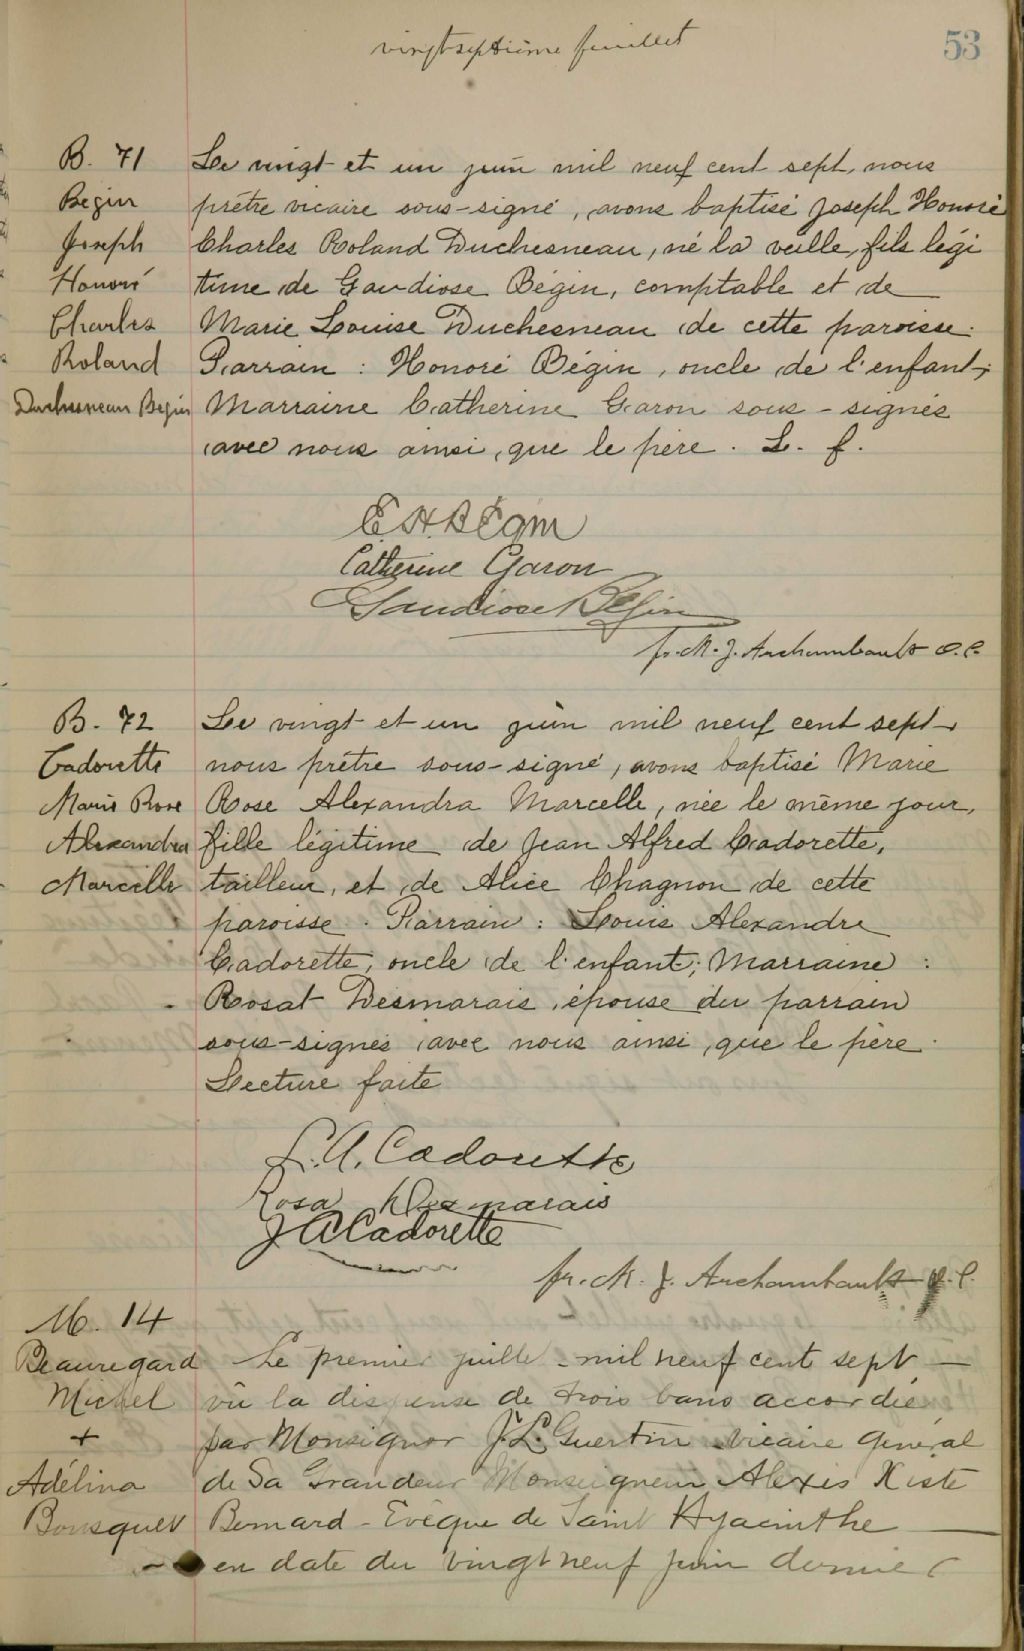 vingtseptième feuillet
53
B. 71
Begin
Joseph
Honoré
Charles
Roland
Duchesneau Begin
Le vingt et un juin mil neuf cent sept, nous
prêtre vicaire sous-signé, avons baptisé Joseph Honoré
Charles Roland Duchesneau, né la veille, fils légi
time de Gaudiose Bégin, comptable et de
Marie Louise Duchesneau de cette paroisse.
Parrain : Honoré Bégin, oncle de l'enfant;
Marraine Catherine Garon sous-signés
avec nous ainsi que le père. L. f.
E. H. Bégin
Catherine Garon
Gaudiose Bégin
fr. M. J. Archambault O.P.
B. 72
Cadorette
Marie Rose
Alexandra
Marcelle
Le vingt et un juin mil neuf cent sept
nous prêtre sous-signé, avons baptisé Marie
Rose Alexandra Marcelle, née le même jour,
fille légitime de Jean Alfred Cadorette,
tailleur, et de Alice Chagnon de cette
paroisse. Parrain : Louis Alexandre
Cadorette, oncle de l'enfant; Marraine :
Rosat Desmarais, épouse du parrain
sous-signés avec nous ainsi que le père.
Lecture faite
L. A. Cadorette
Rosa Desmarais
J A Cadorette
fr. M. J. Archambault O.P.
M. 14
Beauregard
Michel
+
Adélina
Bousquet
Le premier juillet mil neuf cent sept
vû la dispense de trois bans accordée
par Monsignor J. L. Guertin vicaire général
de Sa Grandeur Monseigneur Alexis Xiste
Bernard - Evêque de Saint Hyacinthe
en date du vingt neuf juin dernier